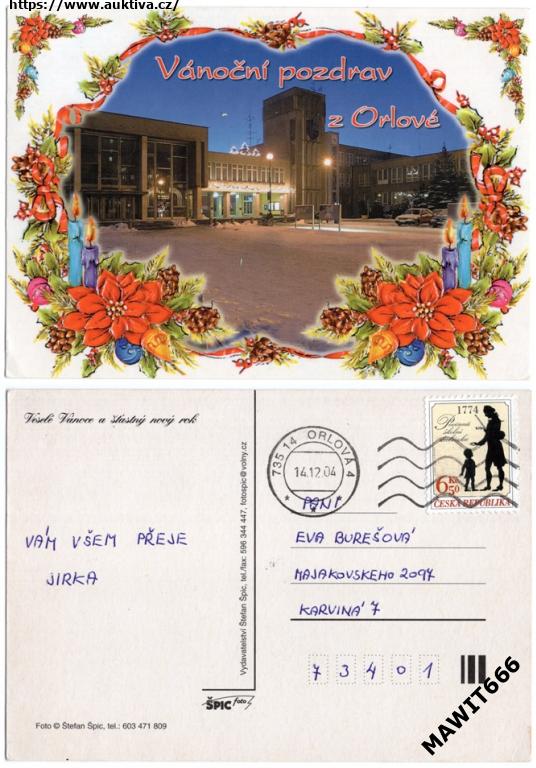 https://www.auktiva.cz/
Vánoční pozdrav
z Orlové
Veselé Vánoce a šťastný nový rok
735 14 ORLOVÁ 4
14.12.04
1774
Povinná
školní
docházka
6 50 Kč
ČESKÁ REPUBLIKA
PANÍ
EVA BUREŠOVÁ
MAJAKOVSKEHO 2097
KARVINÁ 7
7 3 4 0 1
VÁM VŠEM PŘEJE
JIRKA
Vydavatelství Štefan Špic, tel./fax: 596 344 447, fotospic@volny.cz
ŠPIC Foto
Foto © Štefan Špic, tel.: 603 471 809
MAWIT666